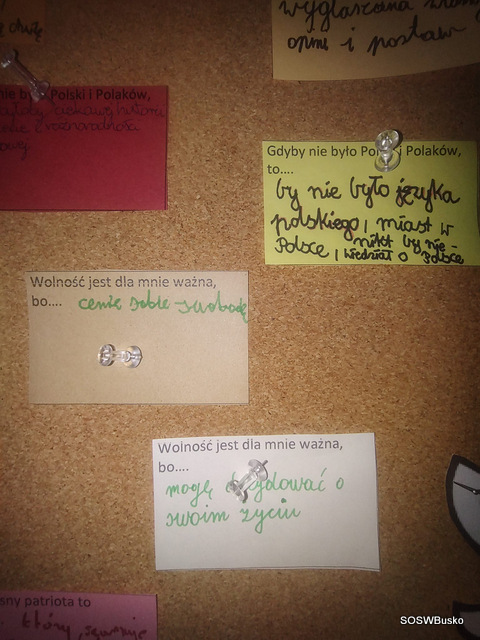 wygłaszania
opini i postaw
nie by Polski i Polaków,
Gdyby nie było Po i Polaków,
to....
by nie było języka
polskiego, miast w
Polsce, nikt by nie
wiedział o Polsce
Wolność jest dla mnie ważna,
bo.... cenię sobie swobodę
Wolność jest dla mnie ważna,
bo....
mogę decydować o
swoim życiu
sny patriota to
który, szanuje
SOSWBusko